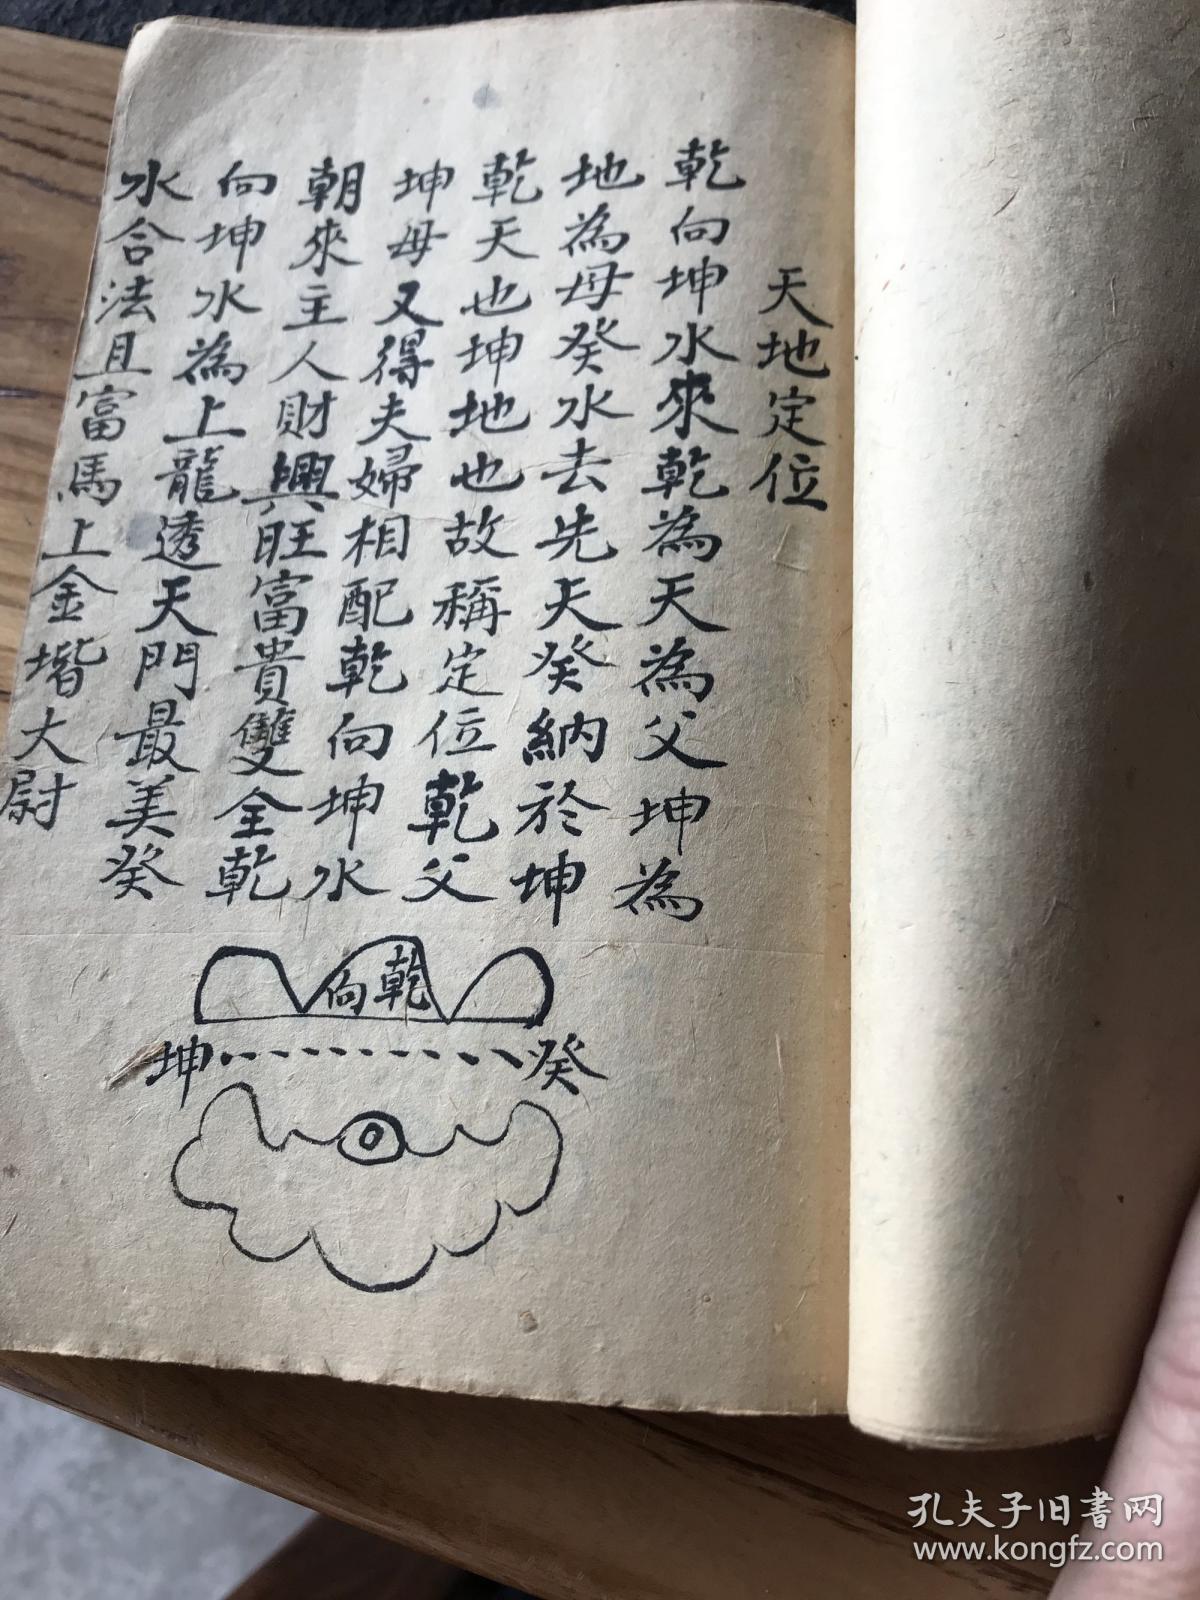 天地定位
乾向坤水來乾為天為父坤為
地為母癸水去先天癸納於坤
乾天也坤地也故稱定位乾父
坤母又得夫婦相配乾向坤水
朝來主人財興旺富貴雙全乾
向坤水為上龍透天門最美癸
水合法且富馬上金堦大尉
乾向
坤 癸
孔夫子旧書网
www.kongfz.com